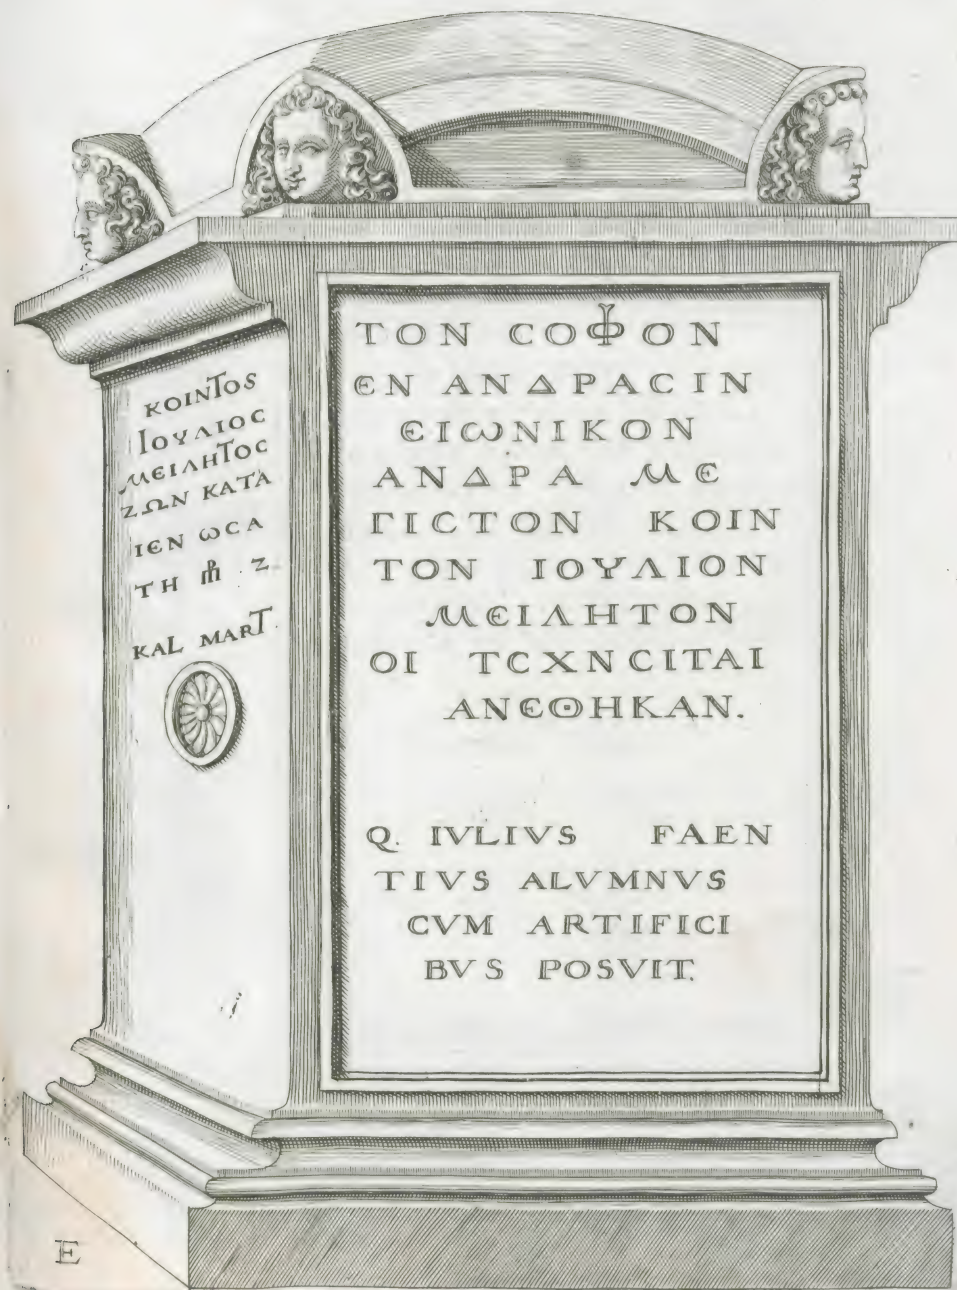 ΚΟΙΝΤΟS
ΙΟΥΛΙΟC
ΜΕΙΛΗΤΟC
ΖΩΝ ΚΑΤΑ
ΙЄΝ ωCΑ
ΤΗ Z
KAL MART.
ΤΟΝ CΟΦΟΝ
ЄΝ ΑΝΔΡΑCΙΝ
ЄΙωΝΙΚΟΝ
ΑΝΔΡΑ ΜЄ
ΓΙCΤΟΝ ΚΟΙΝ
ΤΟΝ ΙΟΥΛΙΟΝ
ΜЄΙΛΗΤΟΝ
ΟΙ ΤCΧΝCΙΤΑΙ
ΑΝЄΘΗΚΑΝ.
Q. IVLIVS FAEN
TIVS ALVMNVS
CVM ARTIFICI
BVS POSVIT.
E